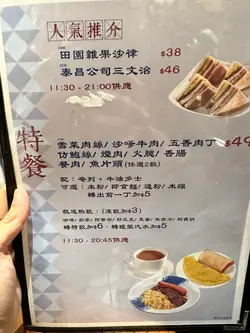 人氣推介
田園雜果沙律 $38
泰昌公司三文治 $46
11:30 - 21:00供應
特餐
雪菜肉絲/ 沙嗲牛肉/ 五香肉丁 $49
仿鮑絲/ 煙肉/ 火腿/ 香腸
餐肉/ 魚片頭 (任選2款)
配: 奄列 + 牛油多士
可選: 米粉/ 即食麵/ 通粉/ 米線
轉出前一丁加$5
飲送熱飲: (凍飲加$3)
咖啡/ 奶茶/
轉特飲加$6 ‧ 轉樽裝汽水加$5
11:30 - 20:45供應